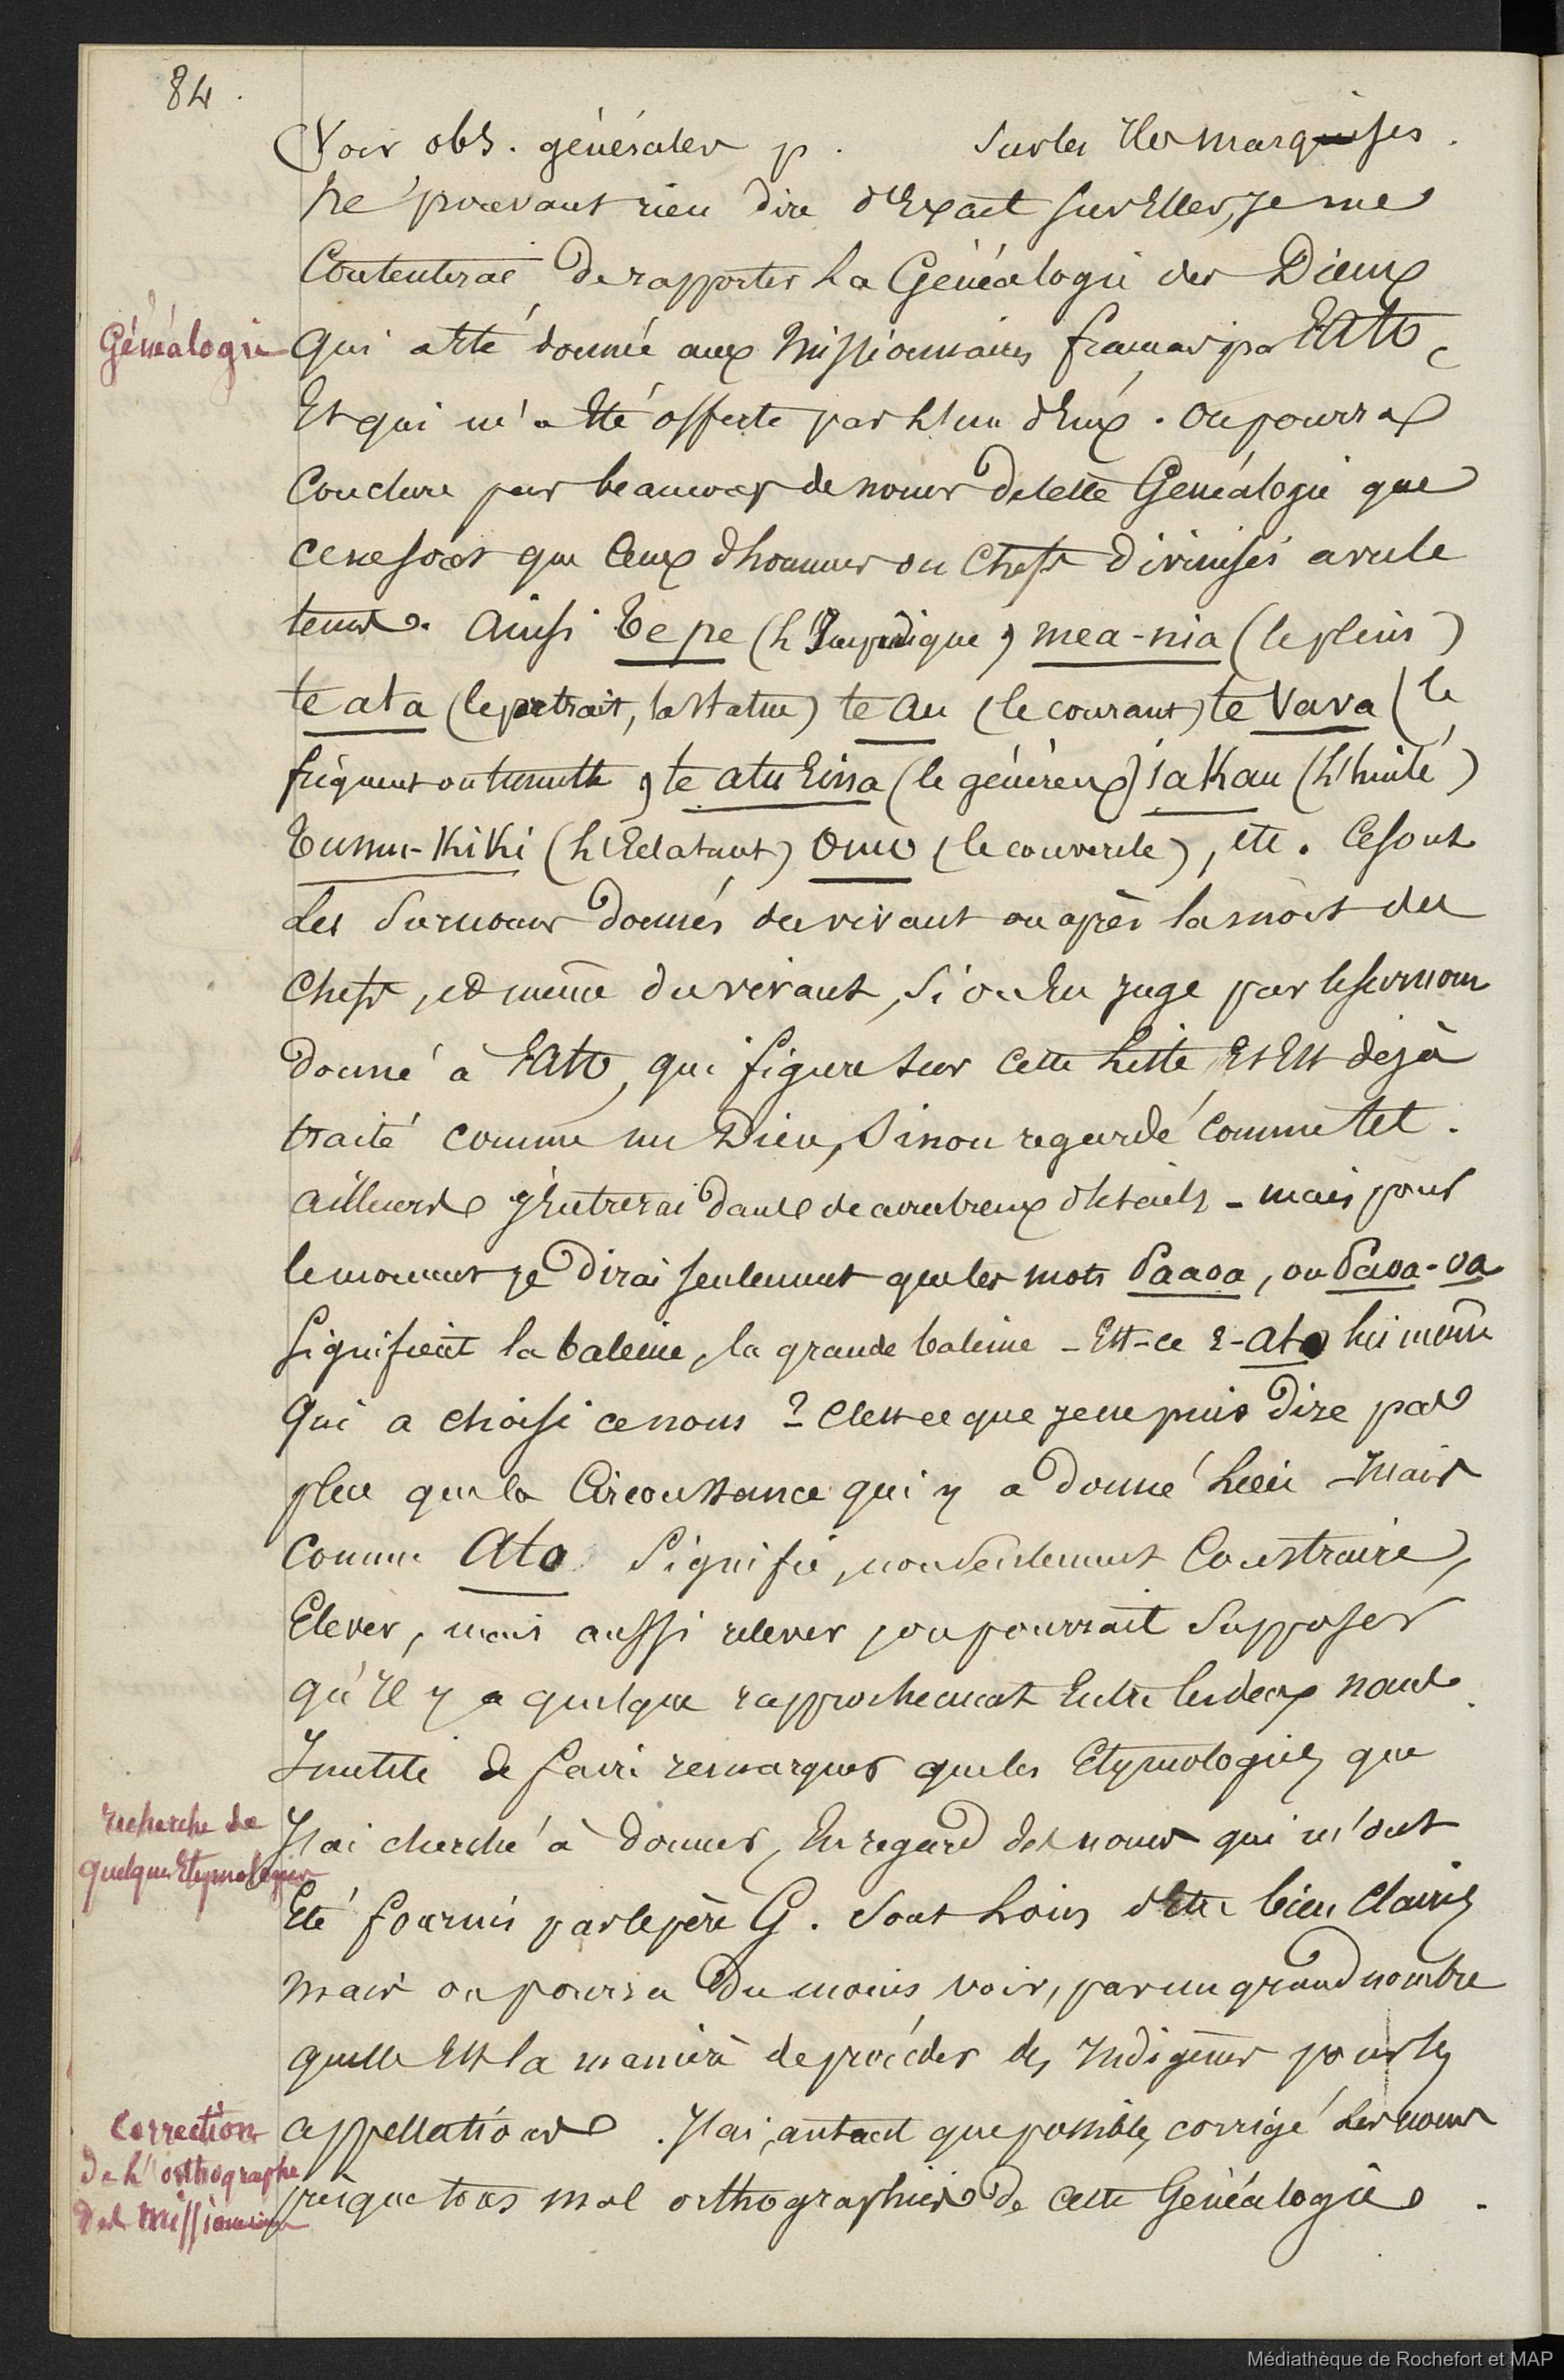 84.
(Voir obs. générales p. sur les Iles marquises.
ne pouvant rien dire d'Exact sur Elles, je me
Contenterai de rapporter la Généalogie des Dieux
Généalogie
qui a Eté donnée aux Missionnaires francais par EAto,
Et qui m'a Eté offerte par l'un d'Eux. on pourra
Conclure par beaucoup de noms de cette Généalogie que
ce ne sont que Ceux d'hommes ou Chefs divinisés avec le
tems. Ainsi Te pe (l'Impudique) mea-nia (le plein)
te ata (le portrait, la statue) te au (le courant) te Vava (le
fréquent ou tumulte) te atu Einsa (le généreux) iakau (l'huilé)
Tumu-Kiki (l'Eclatant) Omo (le couvercle), etc. Ce sont
des Surnoms donnés du vivant ou après la mort des
Chefs, et même du vivant, si on En juge par le surnom
donné à EAto, qui figure sur cette liste Et Est déjà
traité comme un Dieu, Sinon regardé comme tel.
ailleurs j'Entrerai dans de nombreux détails - mais pour
le moment je dirai seulement que les mots Paaoa, ou Paoa-oa
signifient la baleine, la grande baleine - Est-ce E-Ato lui même
Qui a choisi ce nom ? C'est ce que je ne puis dire pas
plus que la Circonstance qui y a donné lieu - Mais
Comme Ato Signifie, non seulement Construire,
Elever, mais aussi relever, on pourrait Supposer
qu'Il y a quelque rapprochement Entre les deux noms.
Inutile de faire remarquer que les Etymologies que
recherche de
quelques Etymologies
J'ai cherché à donner, En regard des noms qui m'ont
Eté fournis par le père G. Sont loin d'Etre bien Claires
mais on pourra du moins voir, par un grand nombre
quelle Est la manière de procéder des Indigènes pour les
Correction
de l'orthographe
des Missionnaires
appellations. J'ai, autant que possible, corrigé les noms
presque tous mal orthographiés de cette Généalogie.
Médiathèque de Rochefort et MAP